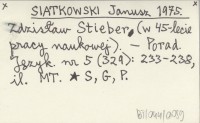 SIATKOWSKI Janusz 1975.
Zdzisław Stieber. (w 45-lecie
pracy naukowej). — Porad.
Język. nr 5 (329): 233-238,
il. MT. ★ S, G, P.